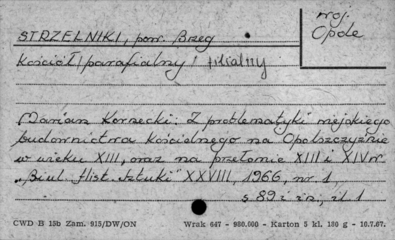 woj.
Opole
STRZELNIKI, pow. Brzeg
kościół /parafialny/ filialny
Marian Kornecki: Z problematyki miejskiego
budownictwa kościelnego na Opolszczyźnie
w wieku XIII, oraz na przełomie XIII i XIV w.
"Biul. Hist. Sztuki" XXVIII, 1966, nr 1,
s 89 i in., il. 1
CWD B 15b Zam. 915/DW/ON Wrak 647 - 980.000 - Karton 5 kl. 180 g - 10.7.67.